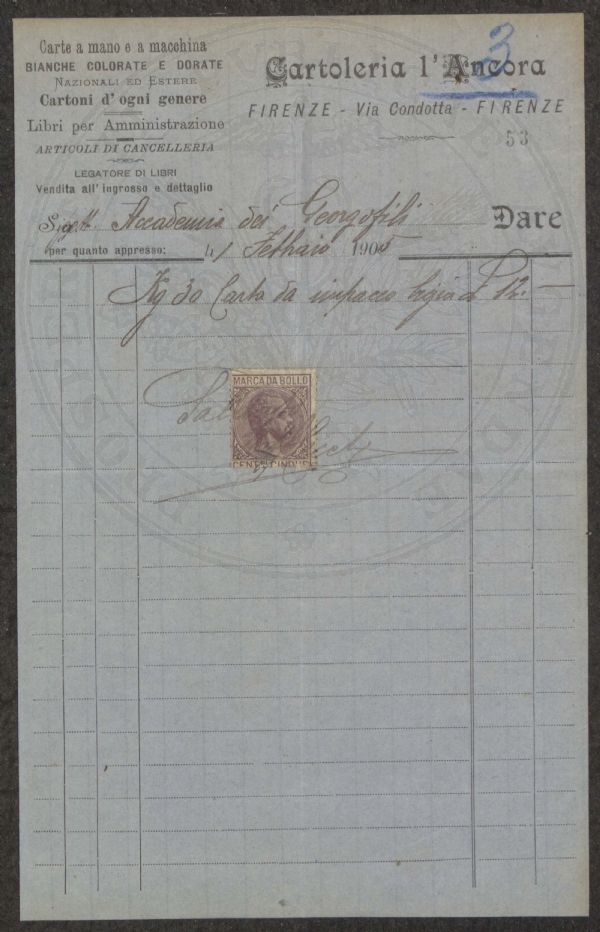 Carte a mano e a macchina
BIANCHE COLORATE E DORATE
NAZIONALI ED ESTERE
Cartoni d' ogni genere
Libri per Amministrazione
ARTICOLI DI CANCELLERIA
LEGATORE DI LIBRI
Vendita all' ingrosso e dettaglio
3
Cartoleria l'Ancora
FIRENZE - Via Condotta - FIRENZE
53
Accademia dei Georgofili Dare
per quanto appresso: Febbraio 1905
Kg 30 Carta da impacco 12.—
MARCA DA BOLLO